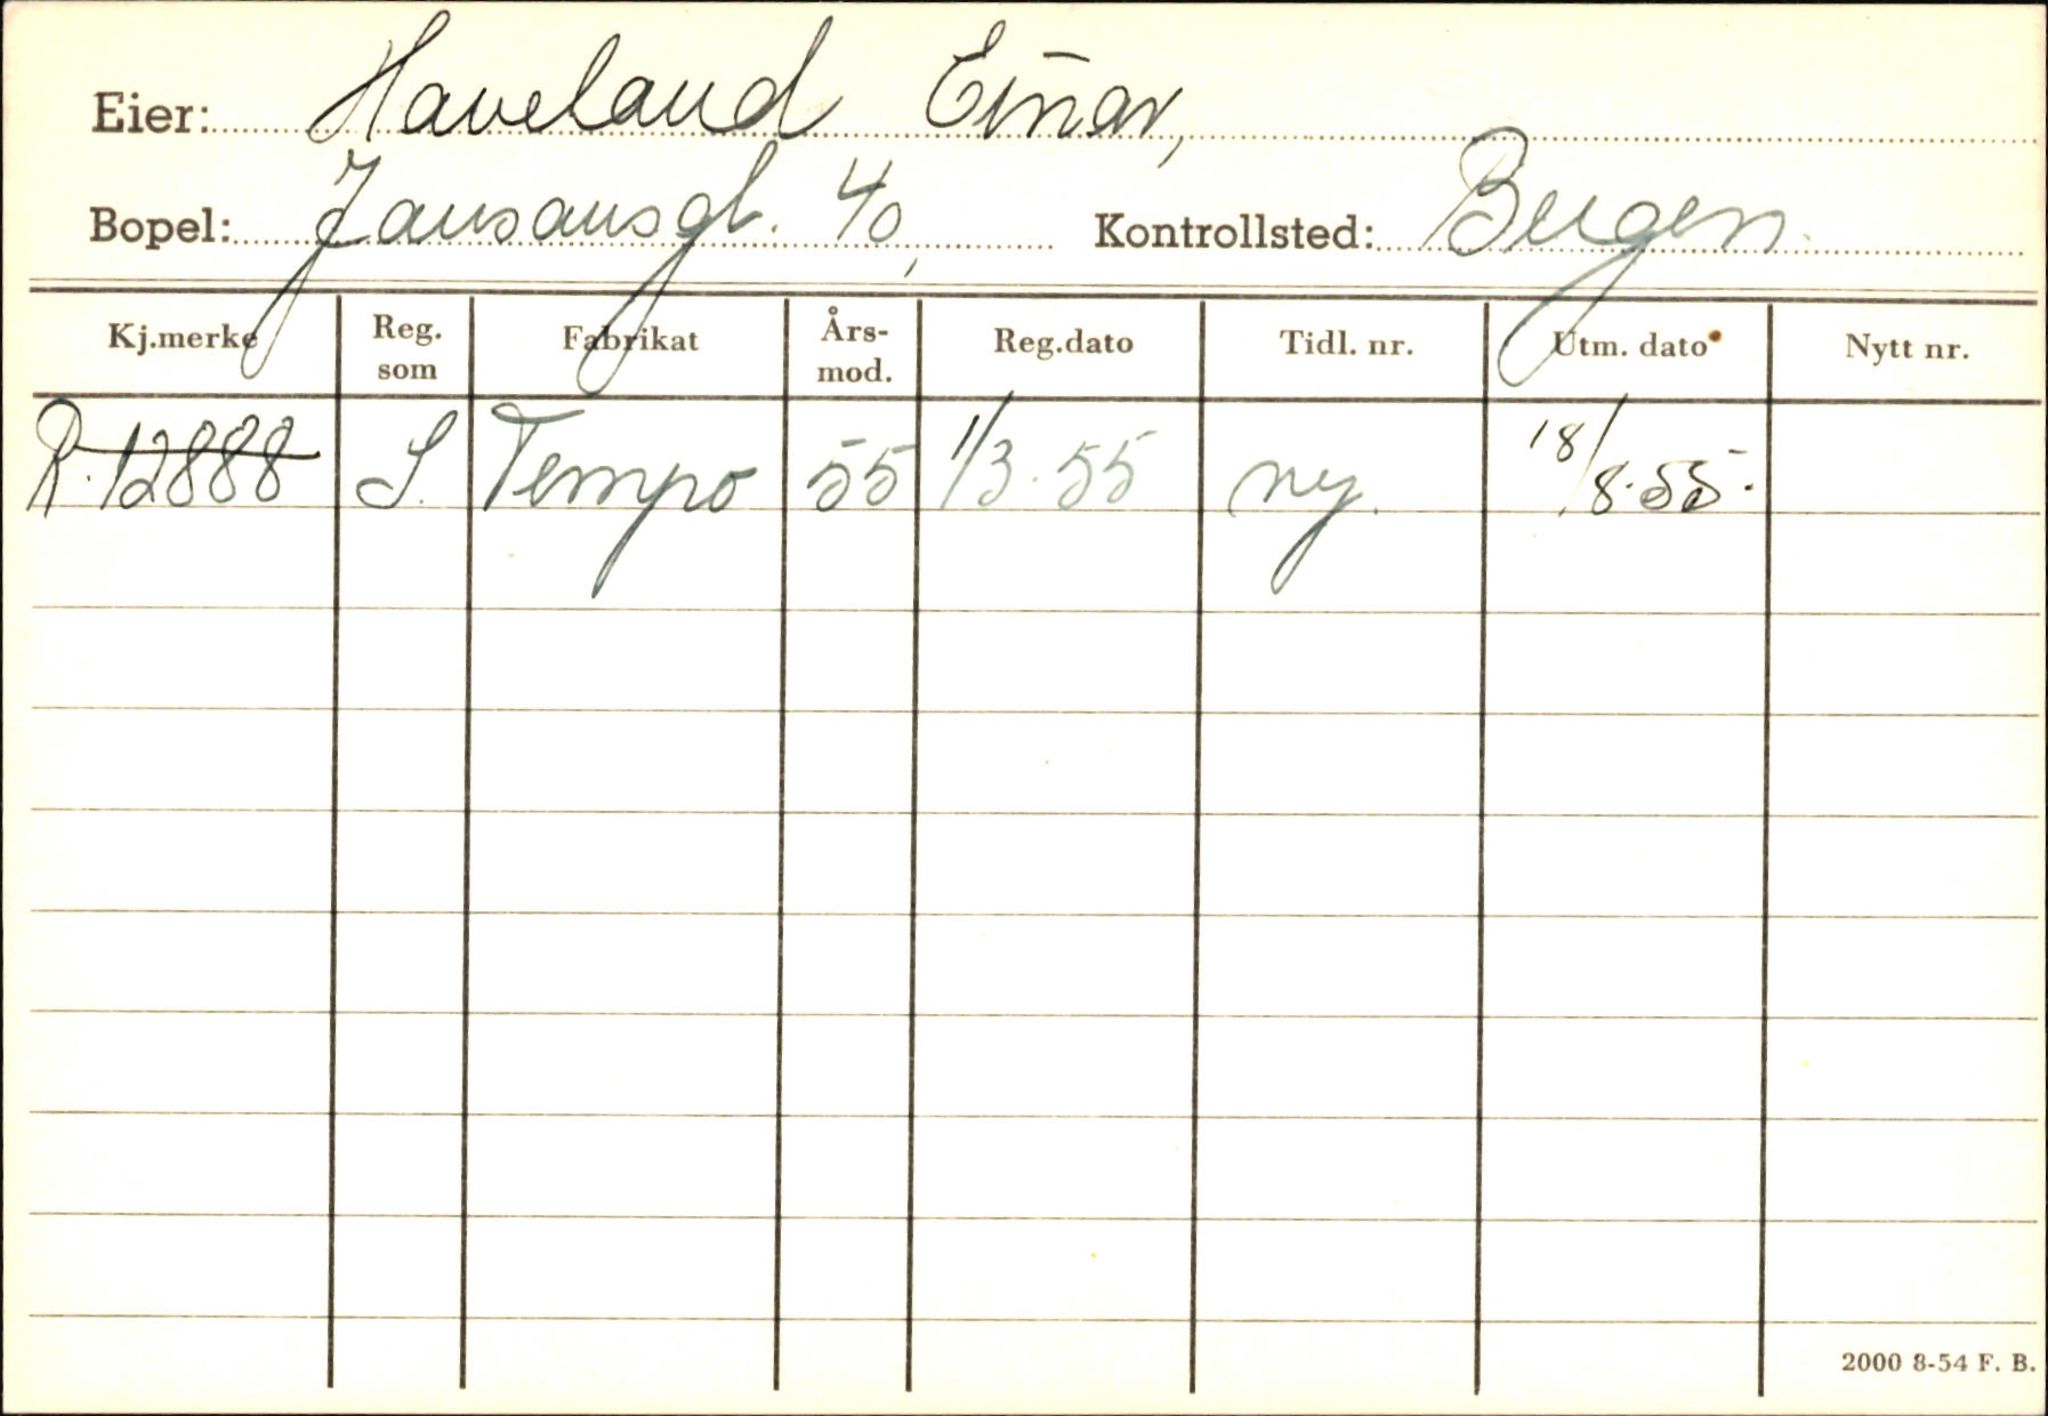 Eier: Haveland Einar,
Bopel: Jansonsgt. 40, Kontrollsted: Bergen.
Kj.merke Reg. som Fabrikat Års-mod. Reg.dato Tidl. nr. Utm. dato Nytt nr.
R.12888 S. Tempo 55 1/3.55 ny. 18/8.55.
2000 8-54 F. B.